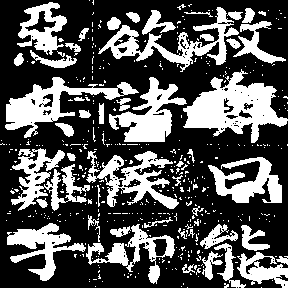 救鄭曰能
欲諸侯而
惡其難乎